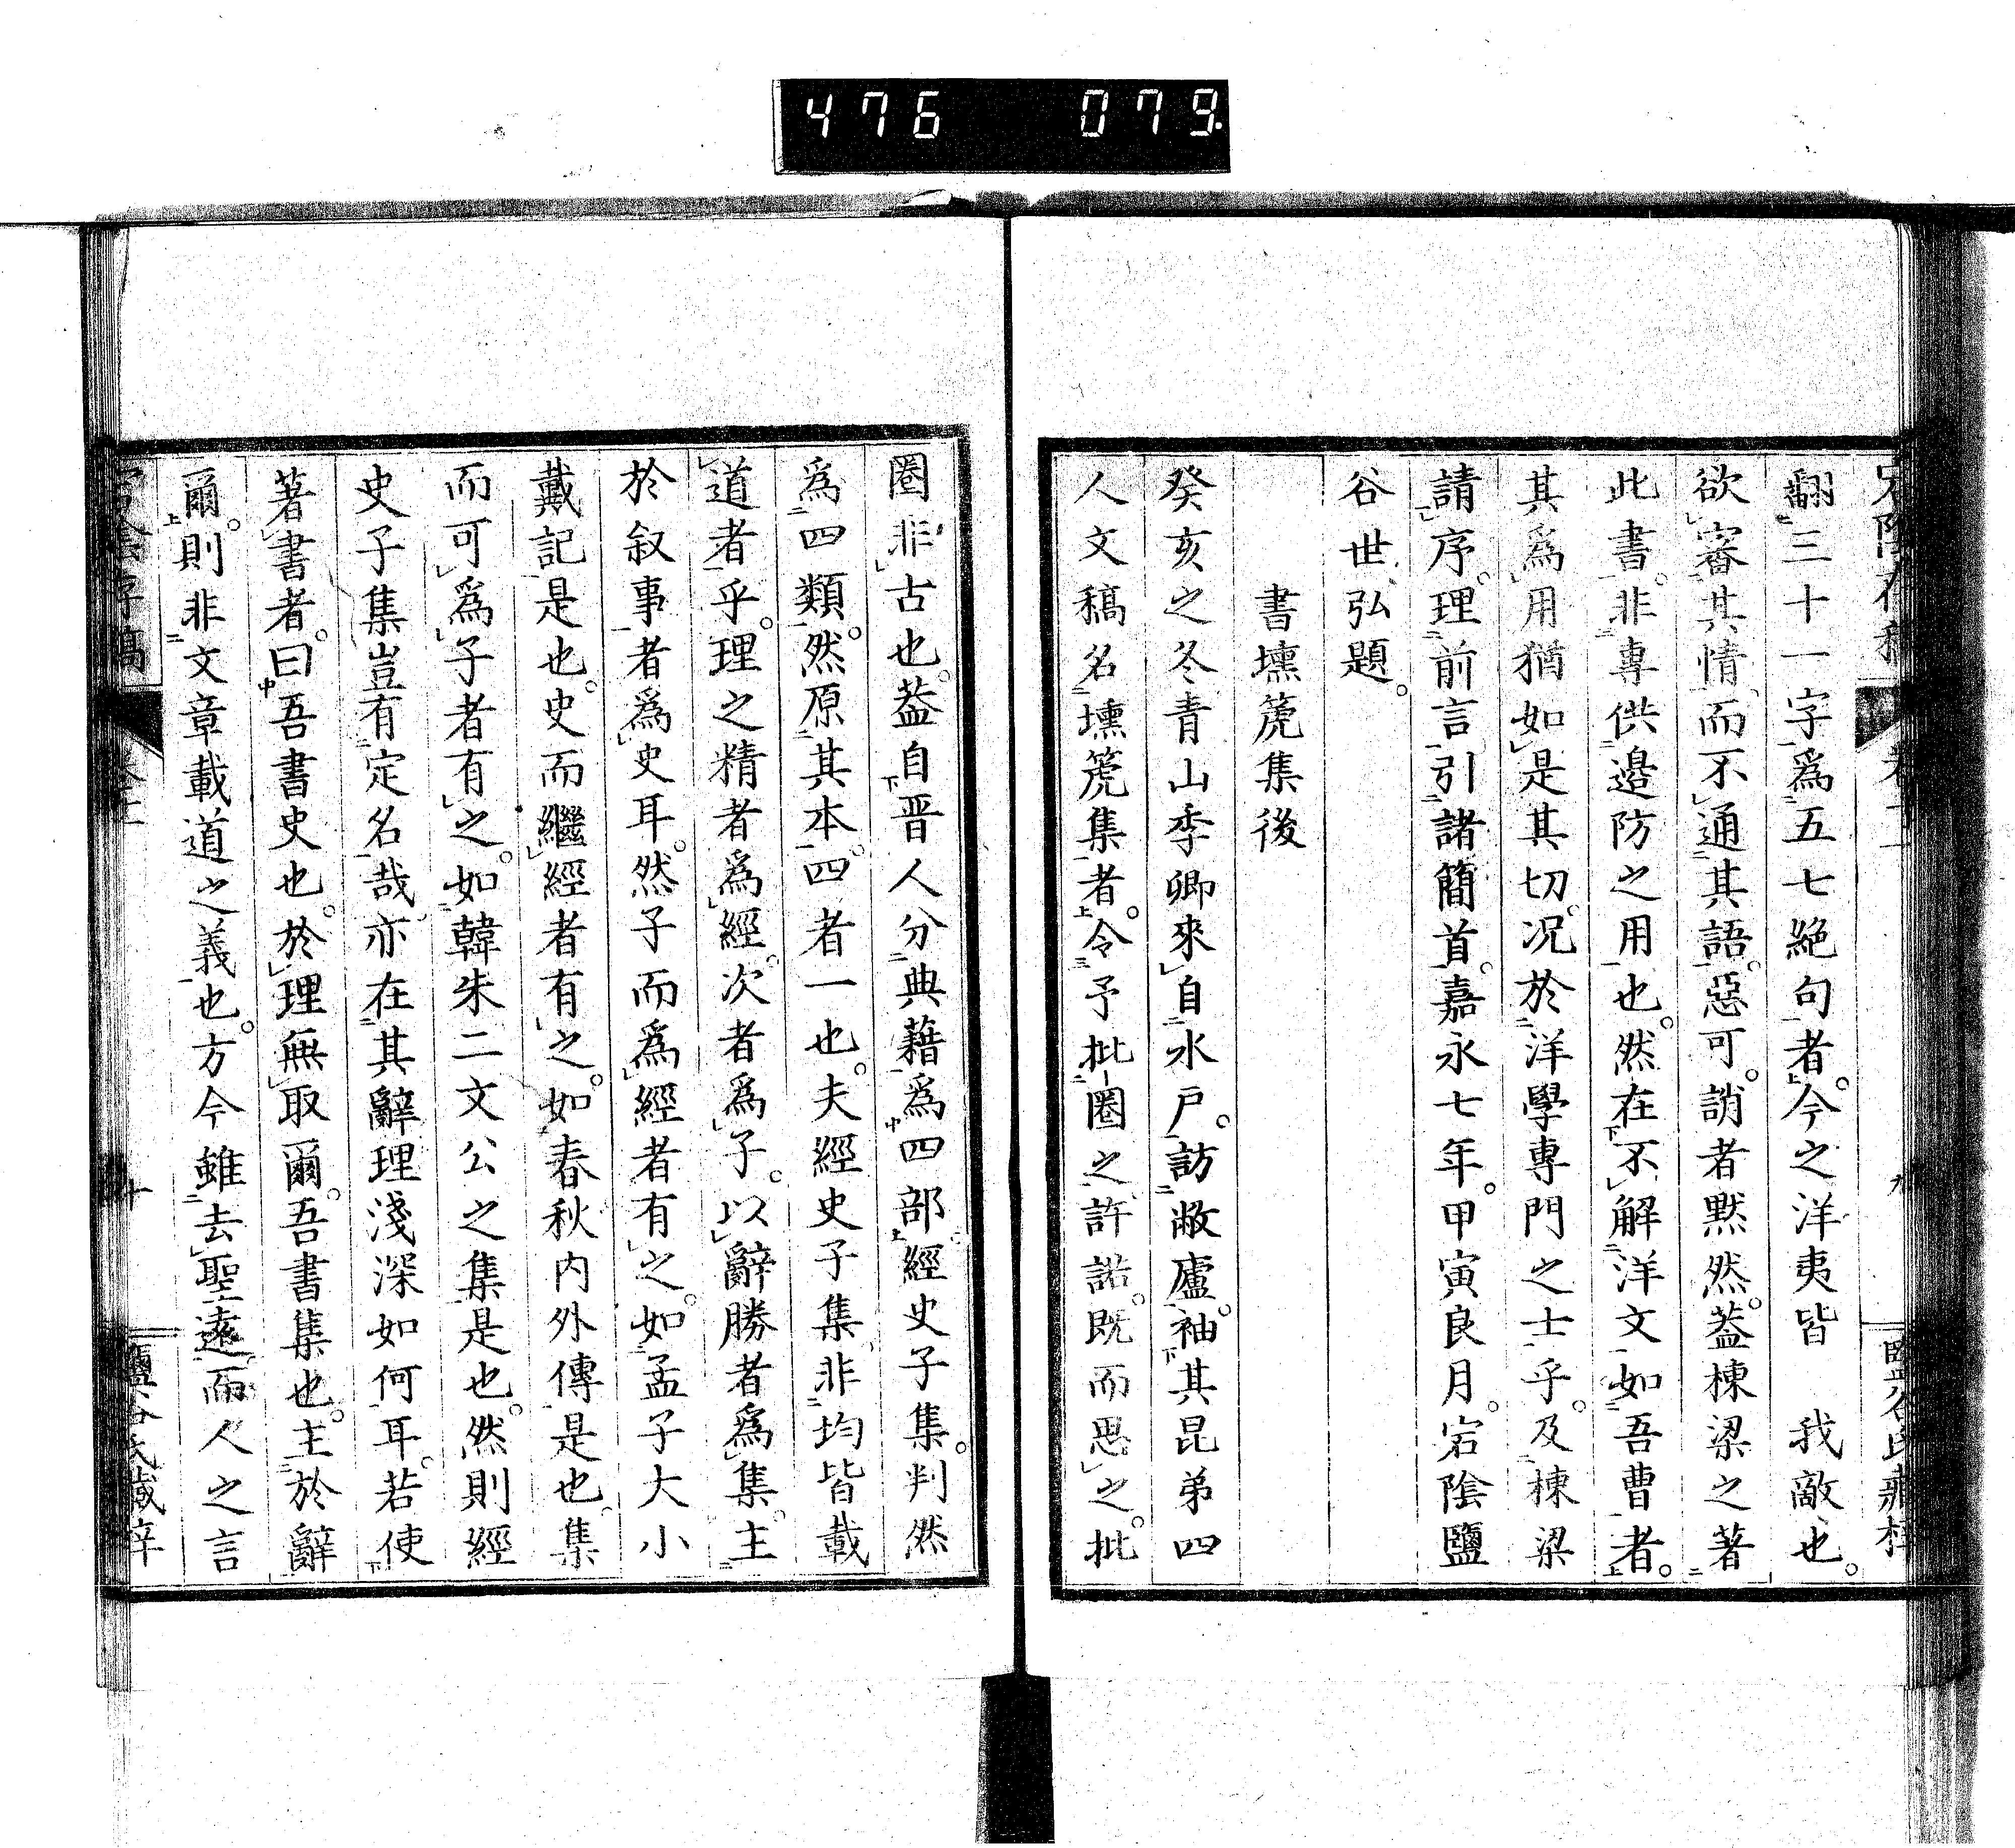 476 079
翻三十一字爲五七絕句者。今之洋夷皆 我敵也。
欲審其情而不通其語。惡可。誚者默然。葢棟梁之著
此書。非專供邉防之用也。然在不解洋文如吾曹者。
其爲用猶如是其切。况於洋學專門之士乎。及棟梁
請序。理前言引諸簡首。嘉永七年。甲寅良月。宕陰鹽
谷世弘題。
書壎篪集後
癸亥之冬青山季卿來自水戶。訪敝廬。袖其昆弟四
人文稿名壎篪集者。令予批圈之。許諾。既而思之。批
圈非古也。葢自晋人分典藉爲四部。經史子集。判然
爲四類。然原其本。四者一也。夫經史子集。非均皆載
道者乎。理之精者爲經。次者爲子。以辭勝者爲集。主
於叙事者爲史耳。然子而爲經者有之。如孟子大小
戴記是也。史而繼經者有之。如春秋内外傳是也。集
而可爲子者有之。如韓朱二文公之集是也。然則經
史子集豈有定名哉。亦在其辭理淺深如何耳。若使
著書者。曰吾書史也。於理無取爾。吾書集也。主於辭
爾。則非文章載道之義也。方今雖去聖遠。而人之言
宕陰存稿